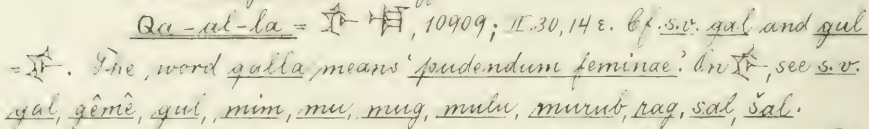 Ga-al-la = 𒊩 𒆷, 10909; II.30, 14 e. Cf. s.v. gal and gul
= 𒊩. The word galla means 'pudendum feminae.' On 𒊩, see s.v.
gal, gêmê, gul, mim, mu, mug, mulu, murub, rag, sal, šal.